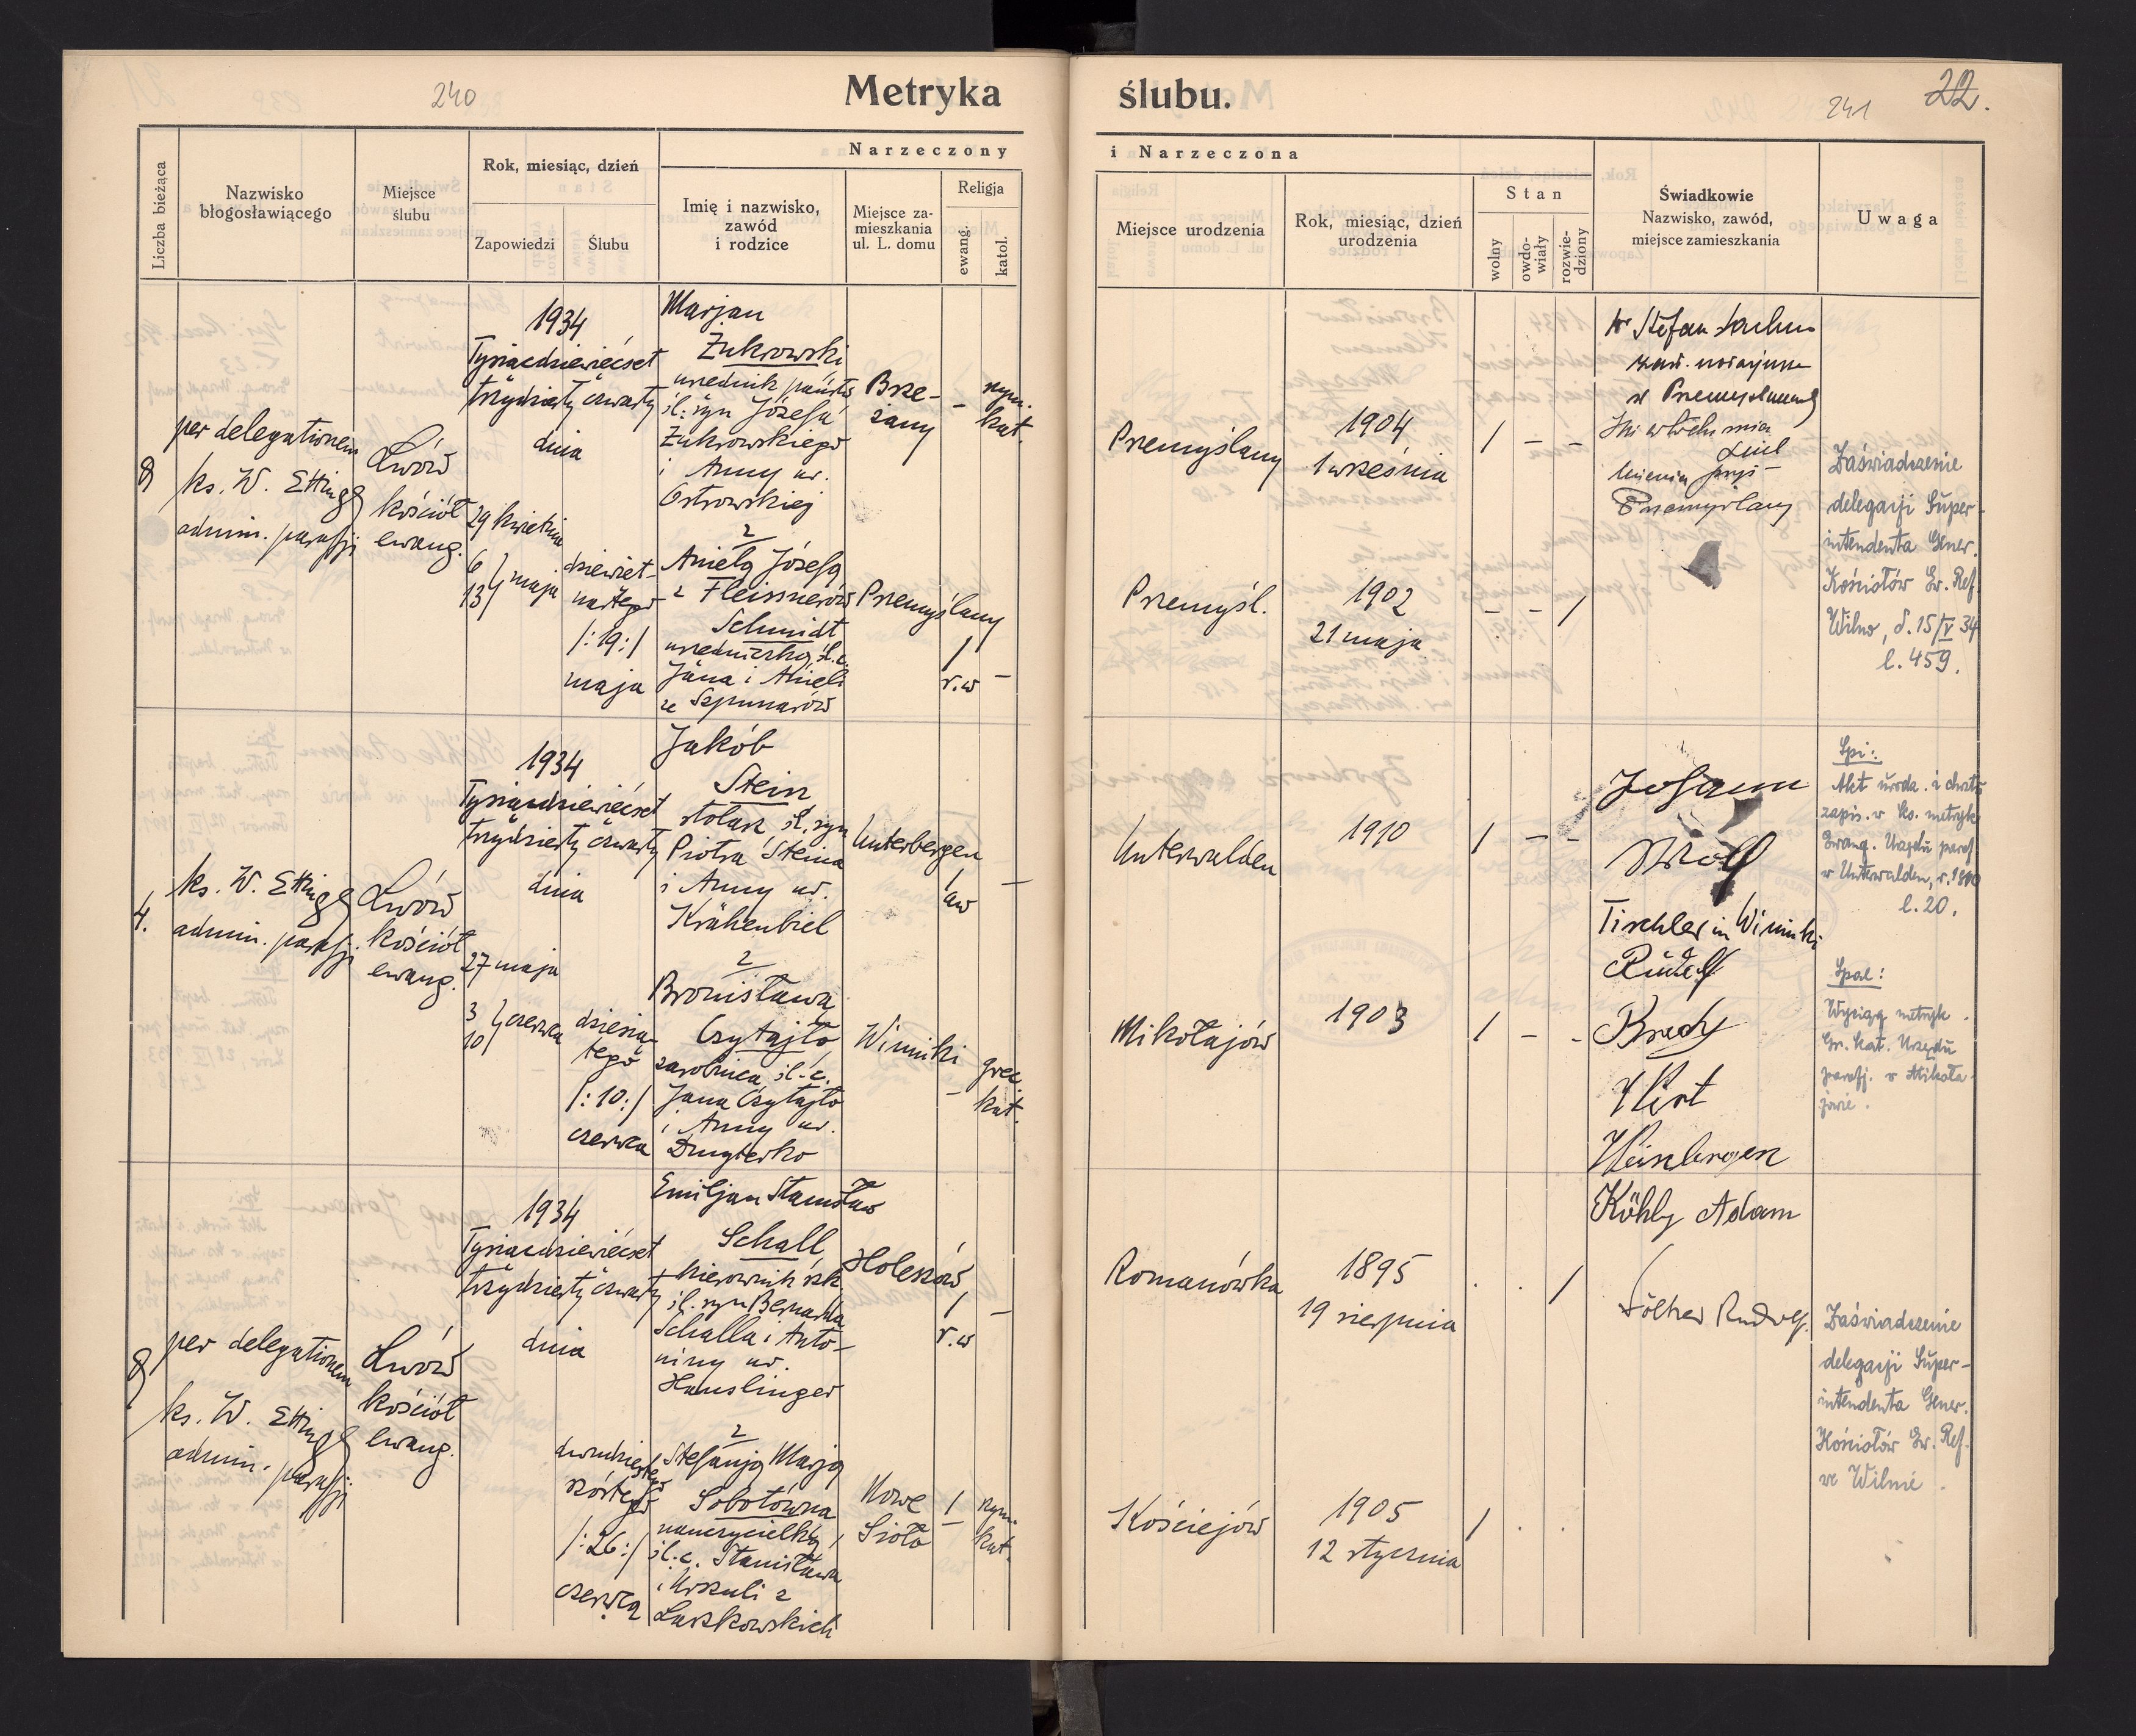 240
Metryka
ślubu.
241
22.
Liczba bieżąca
Nazwisko
błogosławiącego
Miejsce
ślubu
Rok, miesiąc, dzień
Zapowiedzi
Ślubu
Narzeczony
Imię i nazwisko,
zawód
i rodzice
Miejsce za-
mieszkania
ul. L. domu
Religja
ewang.
katol.
i Narzeczona
Miejsce urodzenia
Rok, miesiąc, dzień
urodzenia
Stan
wolny
owdo-
wiały
rozwie-
dziony
Świadkowie
Nazwisko, zawód,
miejsce zamieszkania
Uwaga
per delegationem
ks. W. Etting
admin. parafji
Lwów
kościół
ewang.
1934
Tysiącdziewięćset
trzydziesty czwarty
dnia
29 kwietnia
6
13 } maja
dziewięt-
nastego
/:19:/
maja
Marjan
Żukrowski
urzednik państw
śl: syn Józefa
Żukrowskiego
i Anny ur.
Ostrowskiej
z
Anielą Józefą
z Fleissnerów
Schmidt
urzedniczką, śl. c.
Jana i Anieli
ze Szpunarów
Brze-
żany
-
rzym.
kat.
Przemyślany
/
r.w
-
Przemyślany
1904
1 września
/ - -
Przemyśl.
1902
21 maja
- - /
Dr Stefan
w Przemyślanach
Przemyślany
Zaświadczenie
delegacji Super-
intendenta Gener.
Kościołów Ew. Ref.
Wilno, d. 15/V 34
l. 459.
4.
ks. W. Etting
admin. parafji.
Lwów
kościół
ewang.
1934
Tysiącdziewięćset
trzydziesty czwarty
dnia
27 maja
3
10 } czerwca
dziesią-
tego
/:10:/
czerwca
Jakób
Stein
stolarz śl. syn
Piotra Steina
i Anny ur.
Krähenbiel
z
Bronisławą
Czytajło
zarobnica, śl. c.
Jana Czytajło
i Anny ur.
Dmyterko
Unterbergen
/
aw
-
Winniki
-
grec.
kat.
Unterwalden
1910
/ - -
Mikołajów
1903
/ - -
Johann
Wolf
Tischler in Winniki
Rudolf
Bredy
Wirt
Weinbergen
Spi:
Akt urodz. i chrztu
zapis. w ks. metryk
Ewang. Urzędu paraf.
w Unterwalden, r. 1910
l. 20.
Spae:
Wyciąg metryk.
Gr. kat. Urzędu
parafj. w Mikoła-
jowie.
per delegationem
ks. W. Etting
admin. parafji
Lwów
kościół
ewang.
1934
Tysiącdziewięćset
trzydziesty czwarty
dnia
dwudziestego
szóstego
/:26:/
czerwca
Emiljan Stanisław
Schall
kierownik szk.
śl. syn Bernarda
Schalla i Anto-
niny ur.
Hauslinger
z
Stefanją Marją
Sobotówna
nauczycielką,
śl. c. Stanisława
i Urszuli z
Laszkowskich
Holeszów
/
r.w
-
Nowe
Sioło
/
-
rzym.
kat.
Romanówka
1895
19 sierpnia
. . /
Kościejów
1905
12 stycznia
/ . .
Köhly Adam
Rudolf.
Zaświadczenie
delegacji Super-
intendenta Gener.
Kościołów Ew. Ref.
we Wilnie.